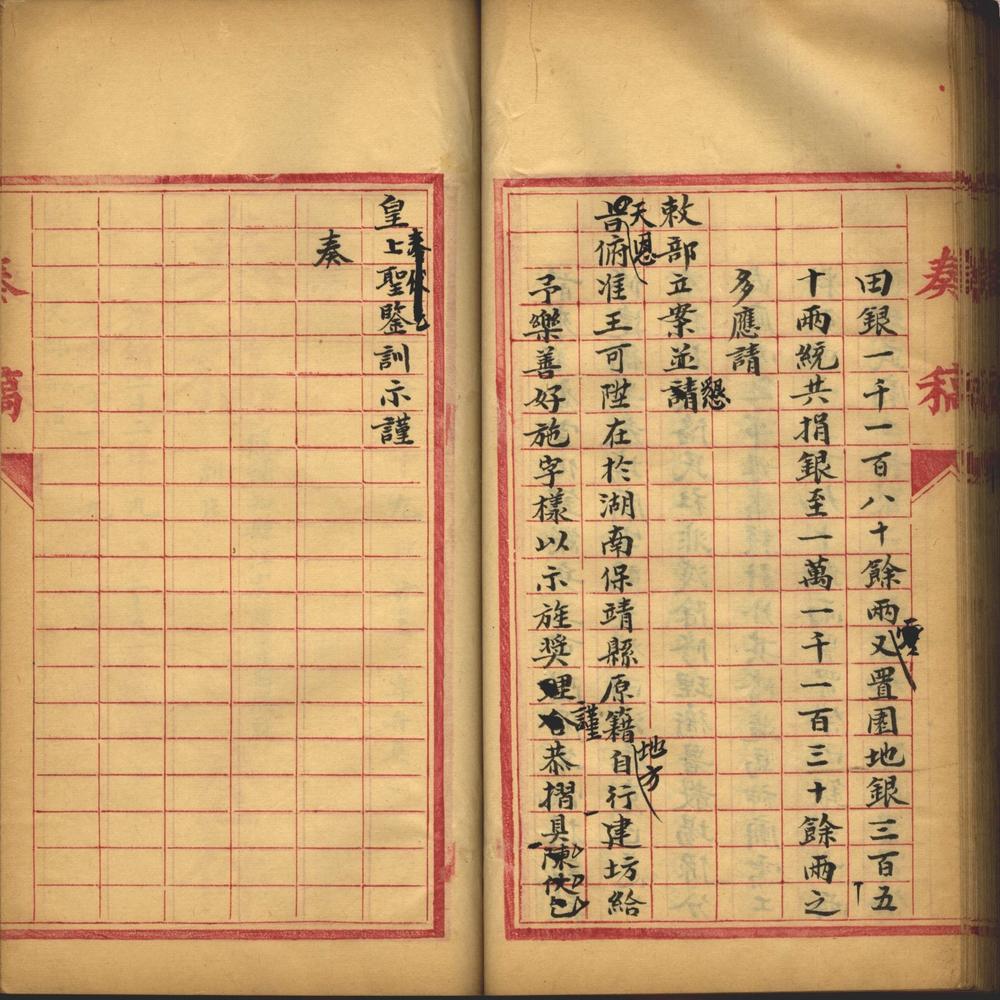 奏稿
田銀一千一百八十餘兩又置園地銀三百五
十兩統共捐銀至一萬一千一百三十餘兩之
多應請
敕部立案並請懇
天恩
旨俯准王可陞在於湖南保靖縣原籍地方自行建坊給
予樂善好施字樣以示旌獎理合謹恭摺具陳伏乞
皇上聖鑒訓示謹
奏
奏稿